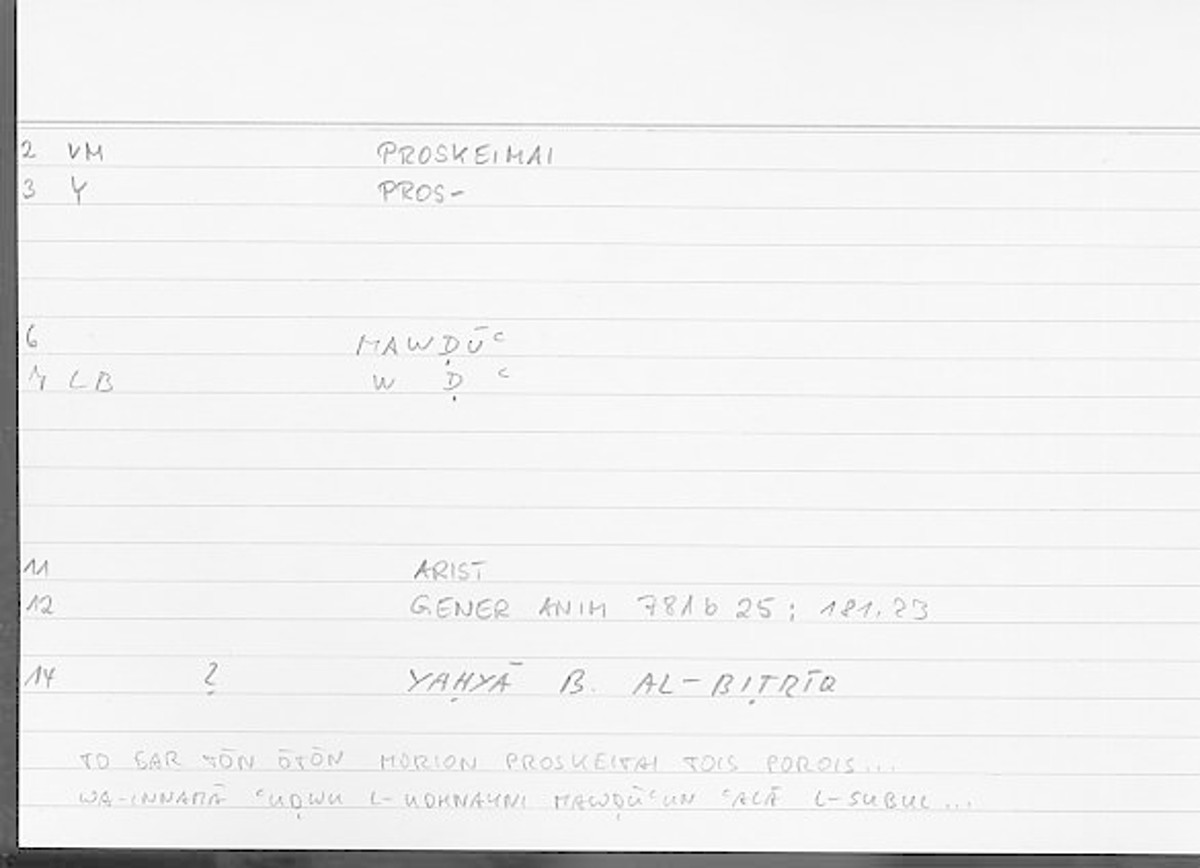 2 VM PROSKEIMAI
3 Y PROS-
6 MAWḌŪʿ
7 LB W Ḍ ʿ
11 ARIST
12 GENER ANIM 781b 25; 181.23
14 ? YAḤYĀ B. AL-BIṬRĪQ
TO GAR TŌN ŌTŌN MORION PROSKEITAI TOIS POROIS...
WA-INNAMĀ ʿUḌWU L- MAWḌŪʿUN ʿALĀ L-SUBUL...